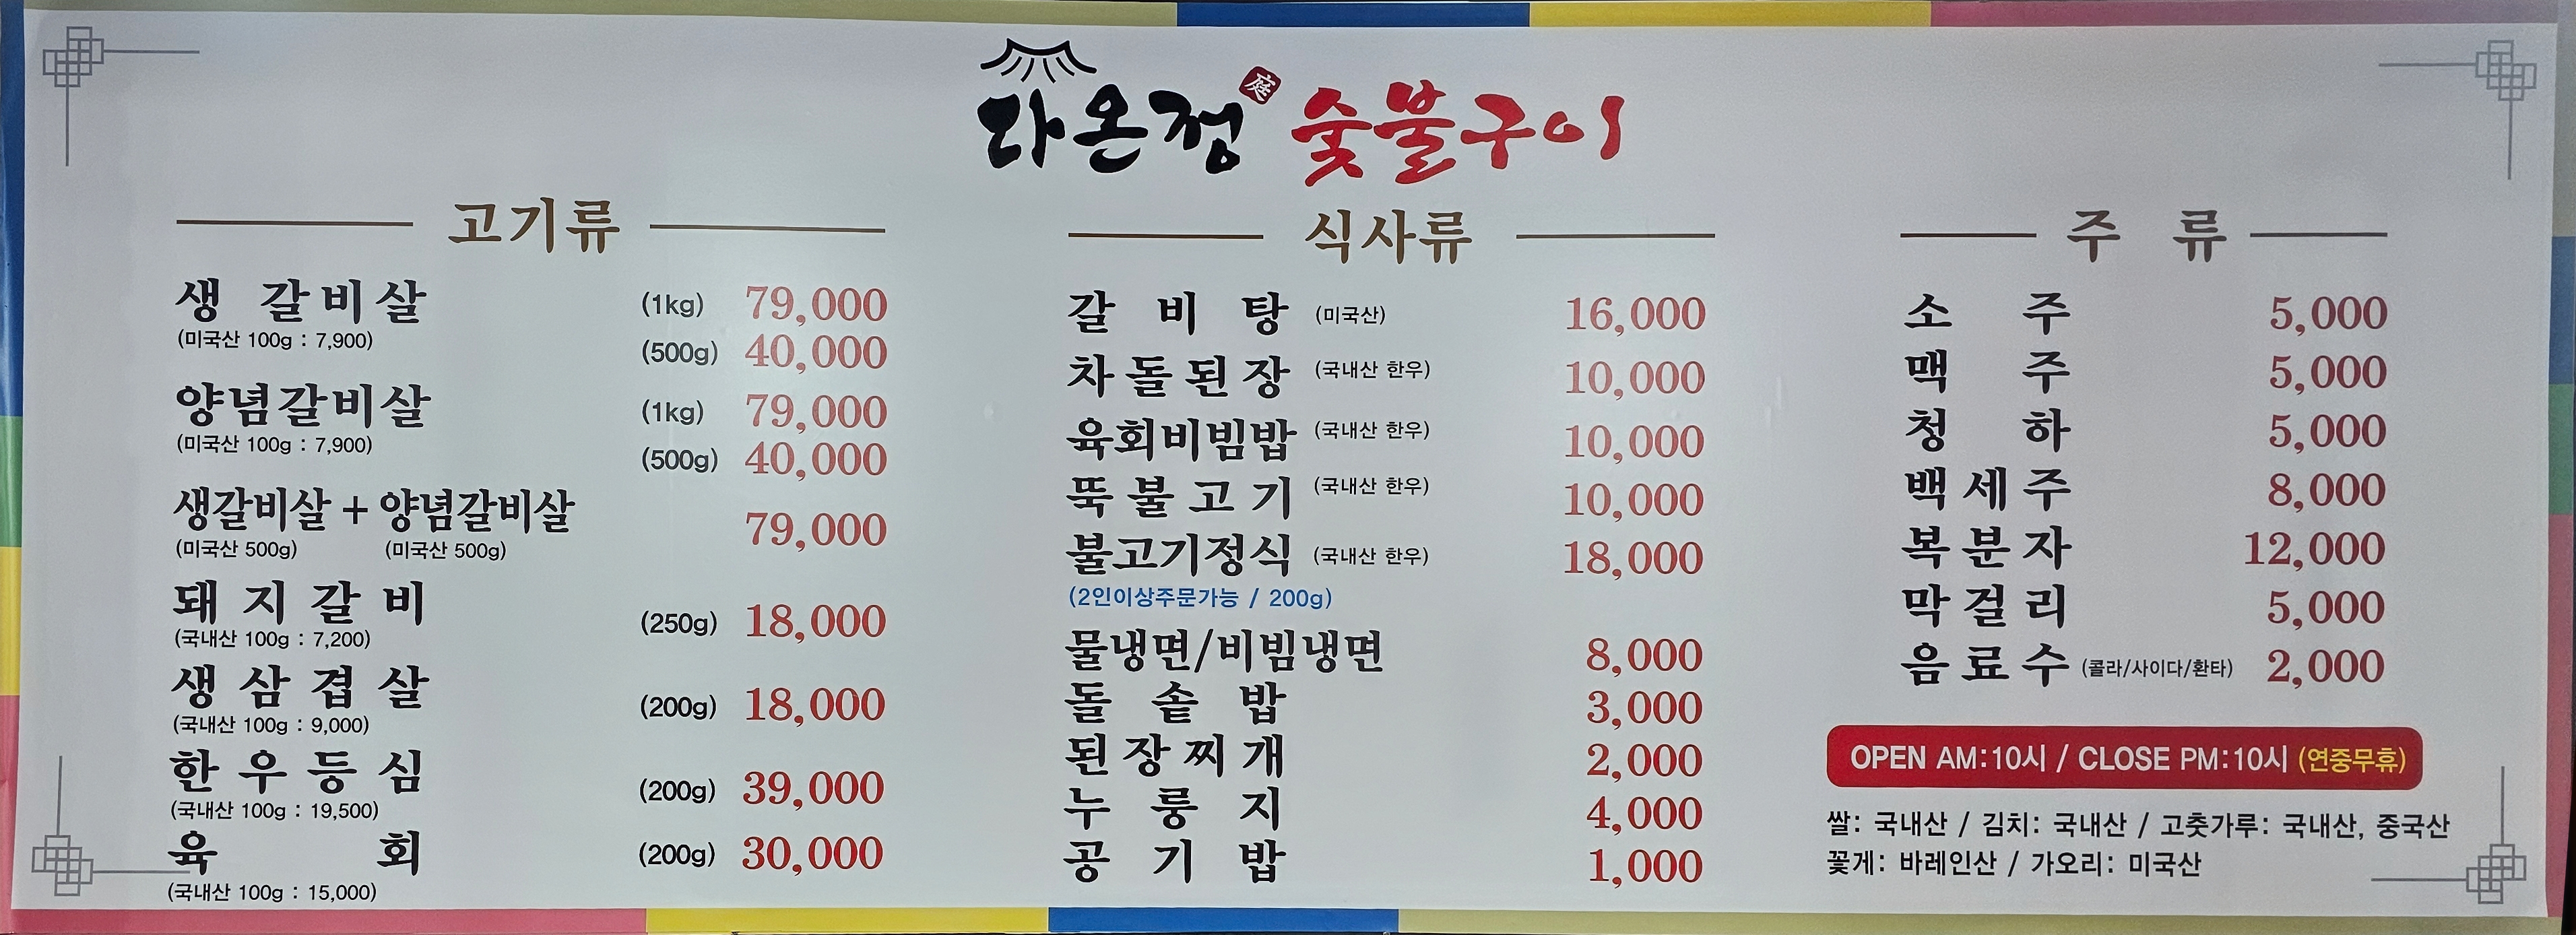 라온정 庭 숯불구이
고기류
생 갈비살 (1kg) 79,000
(미국산 100g : 7,900)
(500g) 40,000
양념갈비살 (1kg) 79,000
(미국산 100g : 7,900)
(500g) 40,000
생갈비살 + 양념갈비살 79,000
(미국산 500g) (미국산 500g)
돼지갈비 (250g) 18,000
(국내산 100g : 7,200)
생삼겹살 (200g) 18,000
(국내산 100g : 9,000)
한우등심 (200g) 39,000
(국내산 100g : 19,500)
육회 (200g) 30,000
(국내산 100g : 15,000)
식사류
갈비탕 (미국산) 16,000
차돌된장 (국내산 한우) 10,000
육회비빔밥 (국내산 한우) 10,000
뚝불고기 (국내산 한우) 10,000
불고기정식 (국내산 한우) 18,000
(2인이상주문가능 / 200g)
물냉면/비빔냉면 8,000
돌솥밥 3,000
된장찌개 2,000
누룽지 4,000
공기밥 1,000
주류
소주 5,000
맥주 5,000
청하 5,000
백세주 8,000
복분자 12,000
막걸리 5,000
음료수 (콜라/사이다/환타) 2,000
OPEN AM:10시 / CLOSE PM:10시 (연중무휴)
쌀: 국내산 / 김치: 국내산 / 고춧가루: 국내산, 중국산
꽃게: 바레인산 / 가오리: 미국산